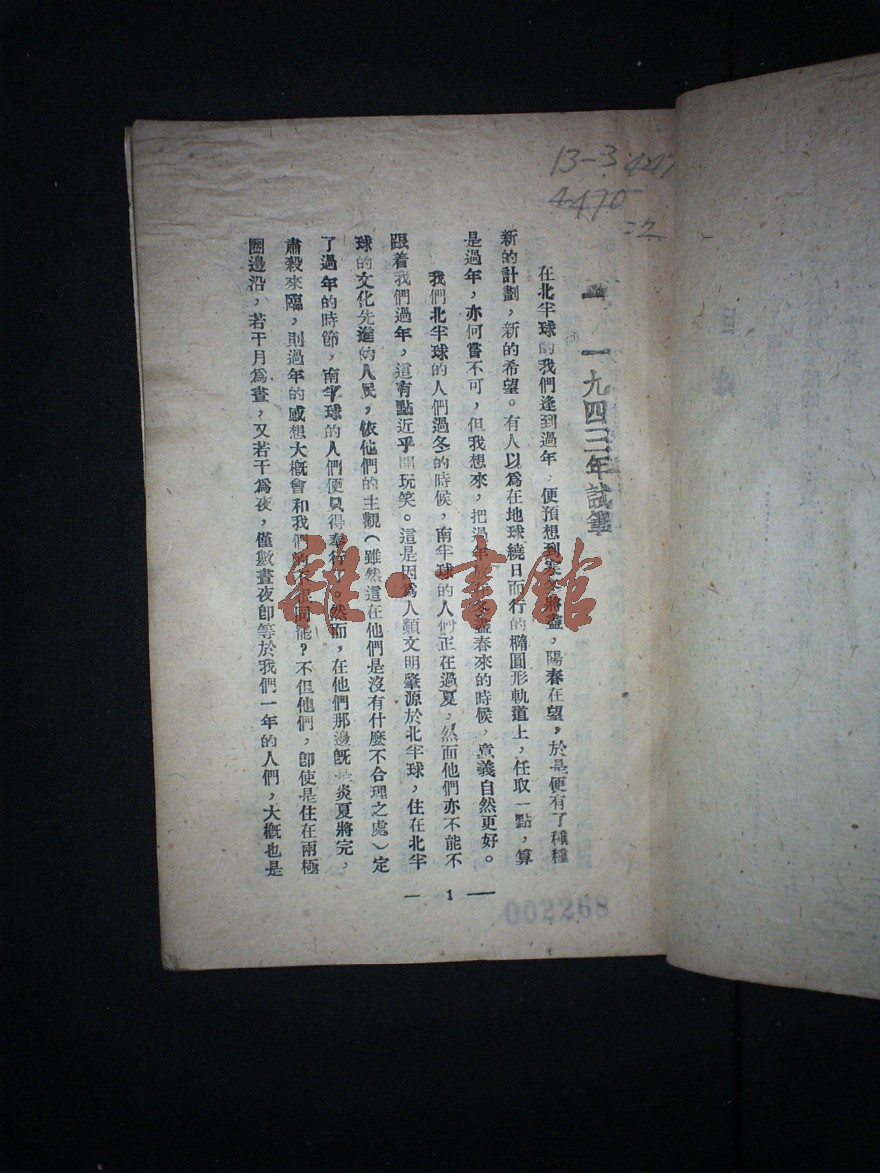 13-3 447
4470
=2
一 一九四三年試筆
在北半球的我們逢到過年，便預想到寒冬將盡，陽春在望，於是便有了種種
新的計劃，新的希望。有人以爲在地球繞日而行的橢圓形軌道上，任取一點，算
是過年，亦何嘗不可，但我想來，把過年放在冬盡春來的時候，意義自然更好。
我們北半球的人們過冬的時候，南半球的人們正在過夏，然而他們亦不能不
跟着我們過年，這有點近乎開玩笑。這是因爲人類文明肇源於北半球，住在北半
球的文化先進的人民，依他們的主觀（雖然這在他們是沒有什麼不合理之處）定
了過年的時節，南半球的人們便只得奉行了。然而，在他們那邊旣是炎夏將完，
肅殺來臨，則過年的感想大概會和我們的不很同能？不但他們，卽使是住在兩極
圈邊沿，若干月爲晝，又若干爲夜，僅數晝夜卽等於我們一年的人們，大概也是
— 1 —
002268
雜·書館